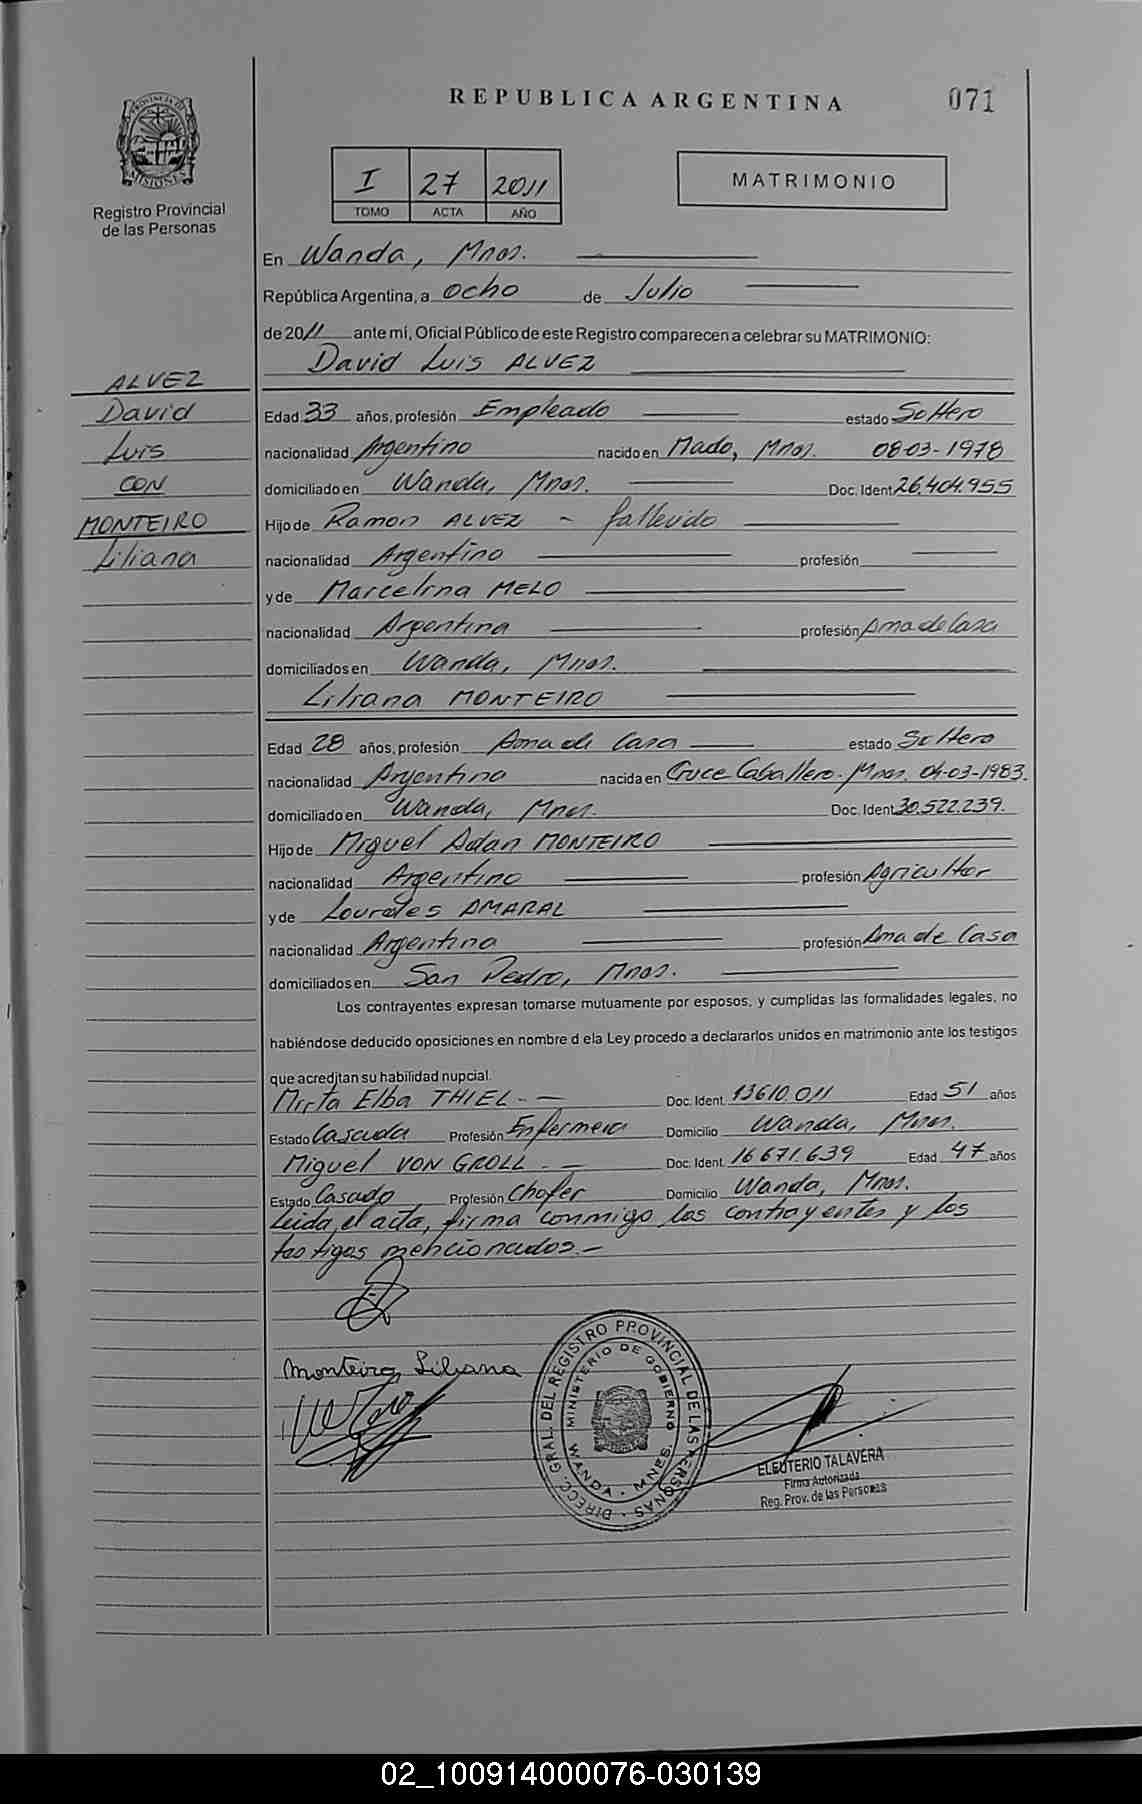 REPUBLICA ARGENTINA
071
PROVINCIA DE MISIONES
Registro Provincial
de las Personas
I 27 2011
TOMO ACTA AÑO
MATRIMONIO
En Wanda, Mnes.
República Argentina, a ocho de Julio
de 2011 ante mí, Oficial Público de este Registro comparecen a celebrar su MATRIMONIO:
David Luis ALVEZ
ALVEZ
David
Luis
CON
MONTEIRO
Liliana
Edad 33 años, profesión Empleado estado Soltero
nacionalidad Argentino nacido en Mado, Mnes. 08-03-1978
domiciliado en Wanda, Mnes. Doc. Ident. 26.404.955
Hijo de Ramon ALVEZ - fallecido
nacionalidad Argentino profesión
y de Marcelina MELO
nacionalidad Argentina profesión Ama de Casa
domiciliados en Wanda, Mnes.
Liliana MONTEIRO
Edad 28 años, profesión Ama de Casa estado Soltera
nacionalidad Argentina nacida en Cruce Caballero - Mnes. 04-03-1983.
domiciliado en Wanda, Mnes. Doc. Ident. 30.522.239.
Hijo de Miguel Adan MONTEIRO
nacionalidad Argentino profesión Agricultor
y de Lourdes AMARAL
nacionalidad Argentina profesión Ama de Casa
domiciliados en San Pedro, Mnes.
Los contrayentes expresan tomarse mutuamente por esposos, y cumplidas las formalidades legales, no
habiéndose deducido oposiciones en nombre d ela Ley procedo a declararlos unidos en matrimonio ante los testigos
que acreditan su habilidad nupcial.
Mirta Elba THIEL.- Doc. Ident. 13610.011 Edad 51 años
Estado Casada Profesión Enfermera Domicilio Wanda, Mnes.
Miguel VON GROLL.- Doc. Ident. 16671.639 Edad 47 años
Estado Casado Profesión Chofer Domicilio Wanda, Mnes.
Leida el acta, firma conmigo los contrayentes y los
testigos mencionados.-
Monteiro, Liliana
DIRECC. GRAL. DEL REGISTRO PROVINCIAL DE LAS PERSONAS
MINISTERIO DE GOBIERNO
WANDA - MNES.
ELEUTERIO TALAVERA
Firma Autorizada
Reg. Prov. de las Personas
02_100914000076-030139